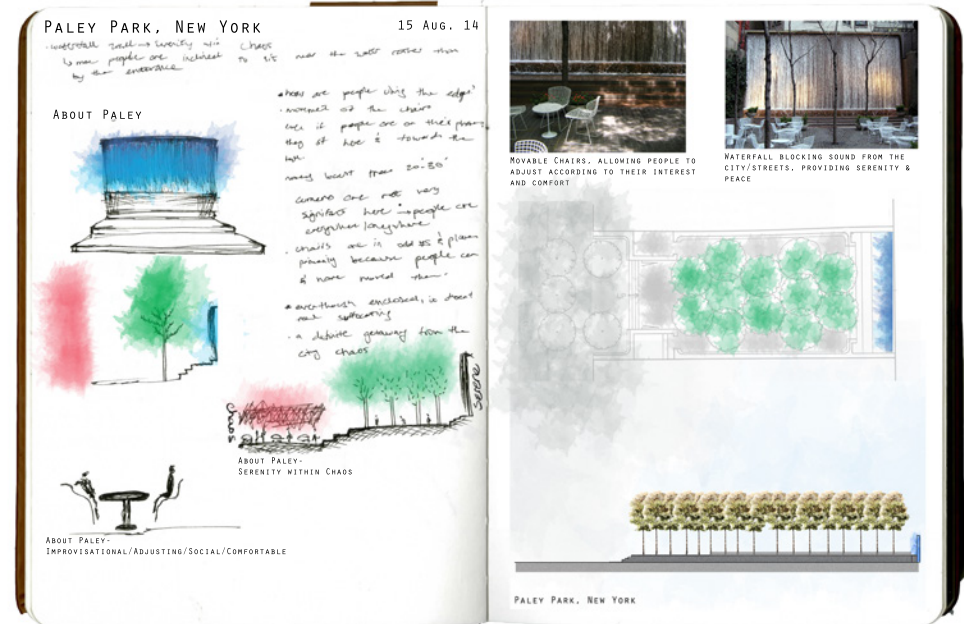 PALEY PARK, NEW YORK
15 AUG. 14
waterfall wall → serenity in chaos
↳ more people are inclined to sit near the wall rather than
by the entrance
ABOUT PALEY
• how are people using the edges?
• movement of the chairs
if people are on their phones
they sit here & towards the
honey locust trees
corners are not very
significant here → people are
everywhere / anywhere
• chairs are in odd & places
primarily because people can
& have moved them.
eventhough enclosed, is
not suffocating
• a definite getaway from the
city chaos
CHAOS
SERENE
ABOUT PALEY-
SERENITY WITHIN CHAOS
ABOUT PALEY-
IMPROVISATIONAL/ADJUSTING/SOCIAL/COMFORTABLE
MOVABLE CHAIRS, ALLOWING PEOPLE TO
ADJUST ACCORDING TO THEIR INTEREST
AND COMFORT
WATERFALL BLOCKING SOUND FROM THE
CITY/STREETS, PROVIDING SERENITY &
PEACE
PALEY PARK, NEW YORK